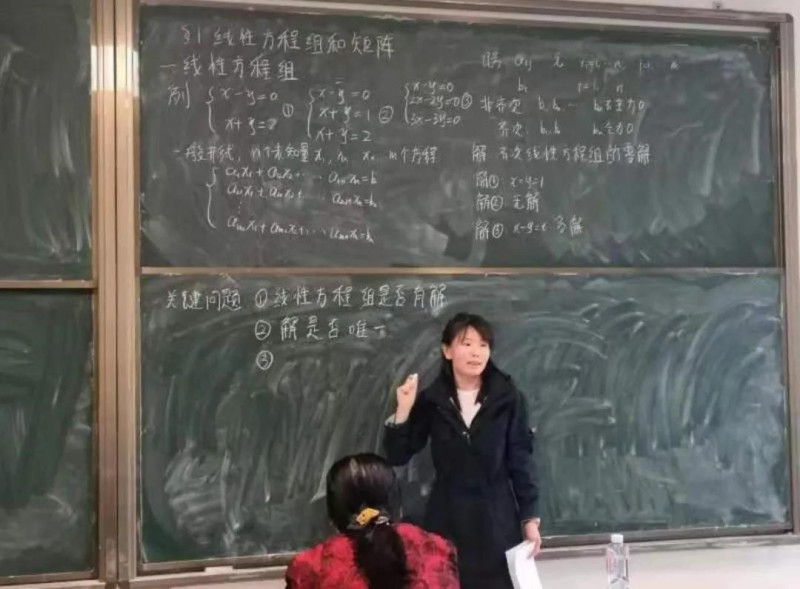 §1 线性方程组和矩阵
一 线性方程组
例 { x-y=0 x+y=2 ① { x-y=0 x+y=1 x+y=2 ② { x-y=0 2x-2y=0 3x-3y=0 ③
一般形式, n个未知量 x₁ x₂ xₙ m个方程
a₁₁x₁+a₁₂x₂+…
a₂₁x₁+a₂₂x₂+…
⋮
aₘ₁x₁+aₘ₂x₂+…
非齐次 b₁ b₂ … 不全为0
齐次 b₁ b₂ 全为0
解 齐次线性方程组的零解
解① x=y=1
解② 无解
解③ 多解
关键问题 ① 线性方程组是否有解
② 解是否唯一
③